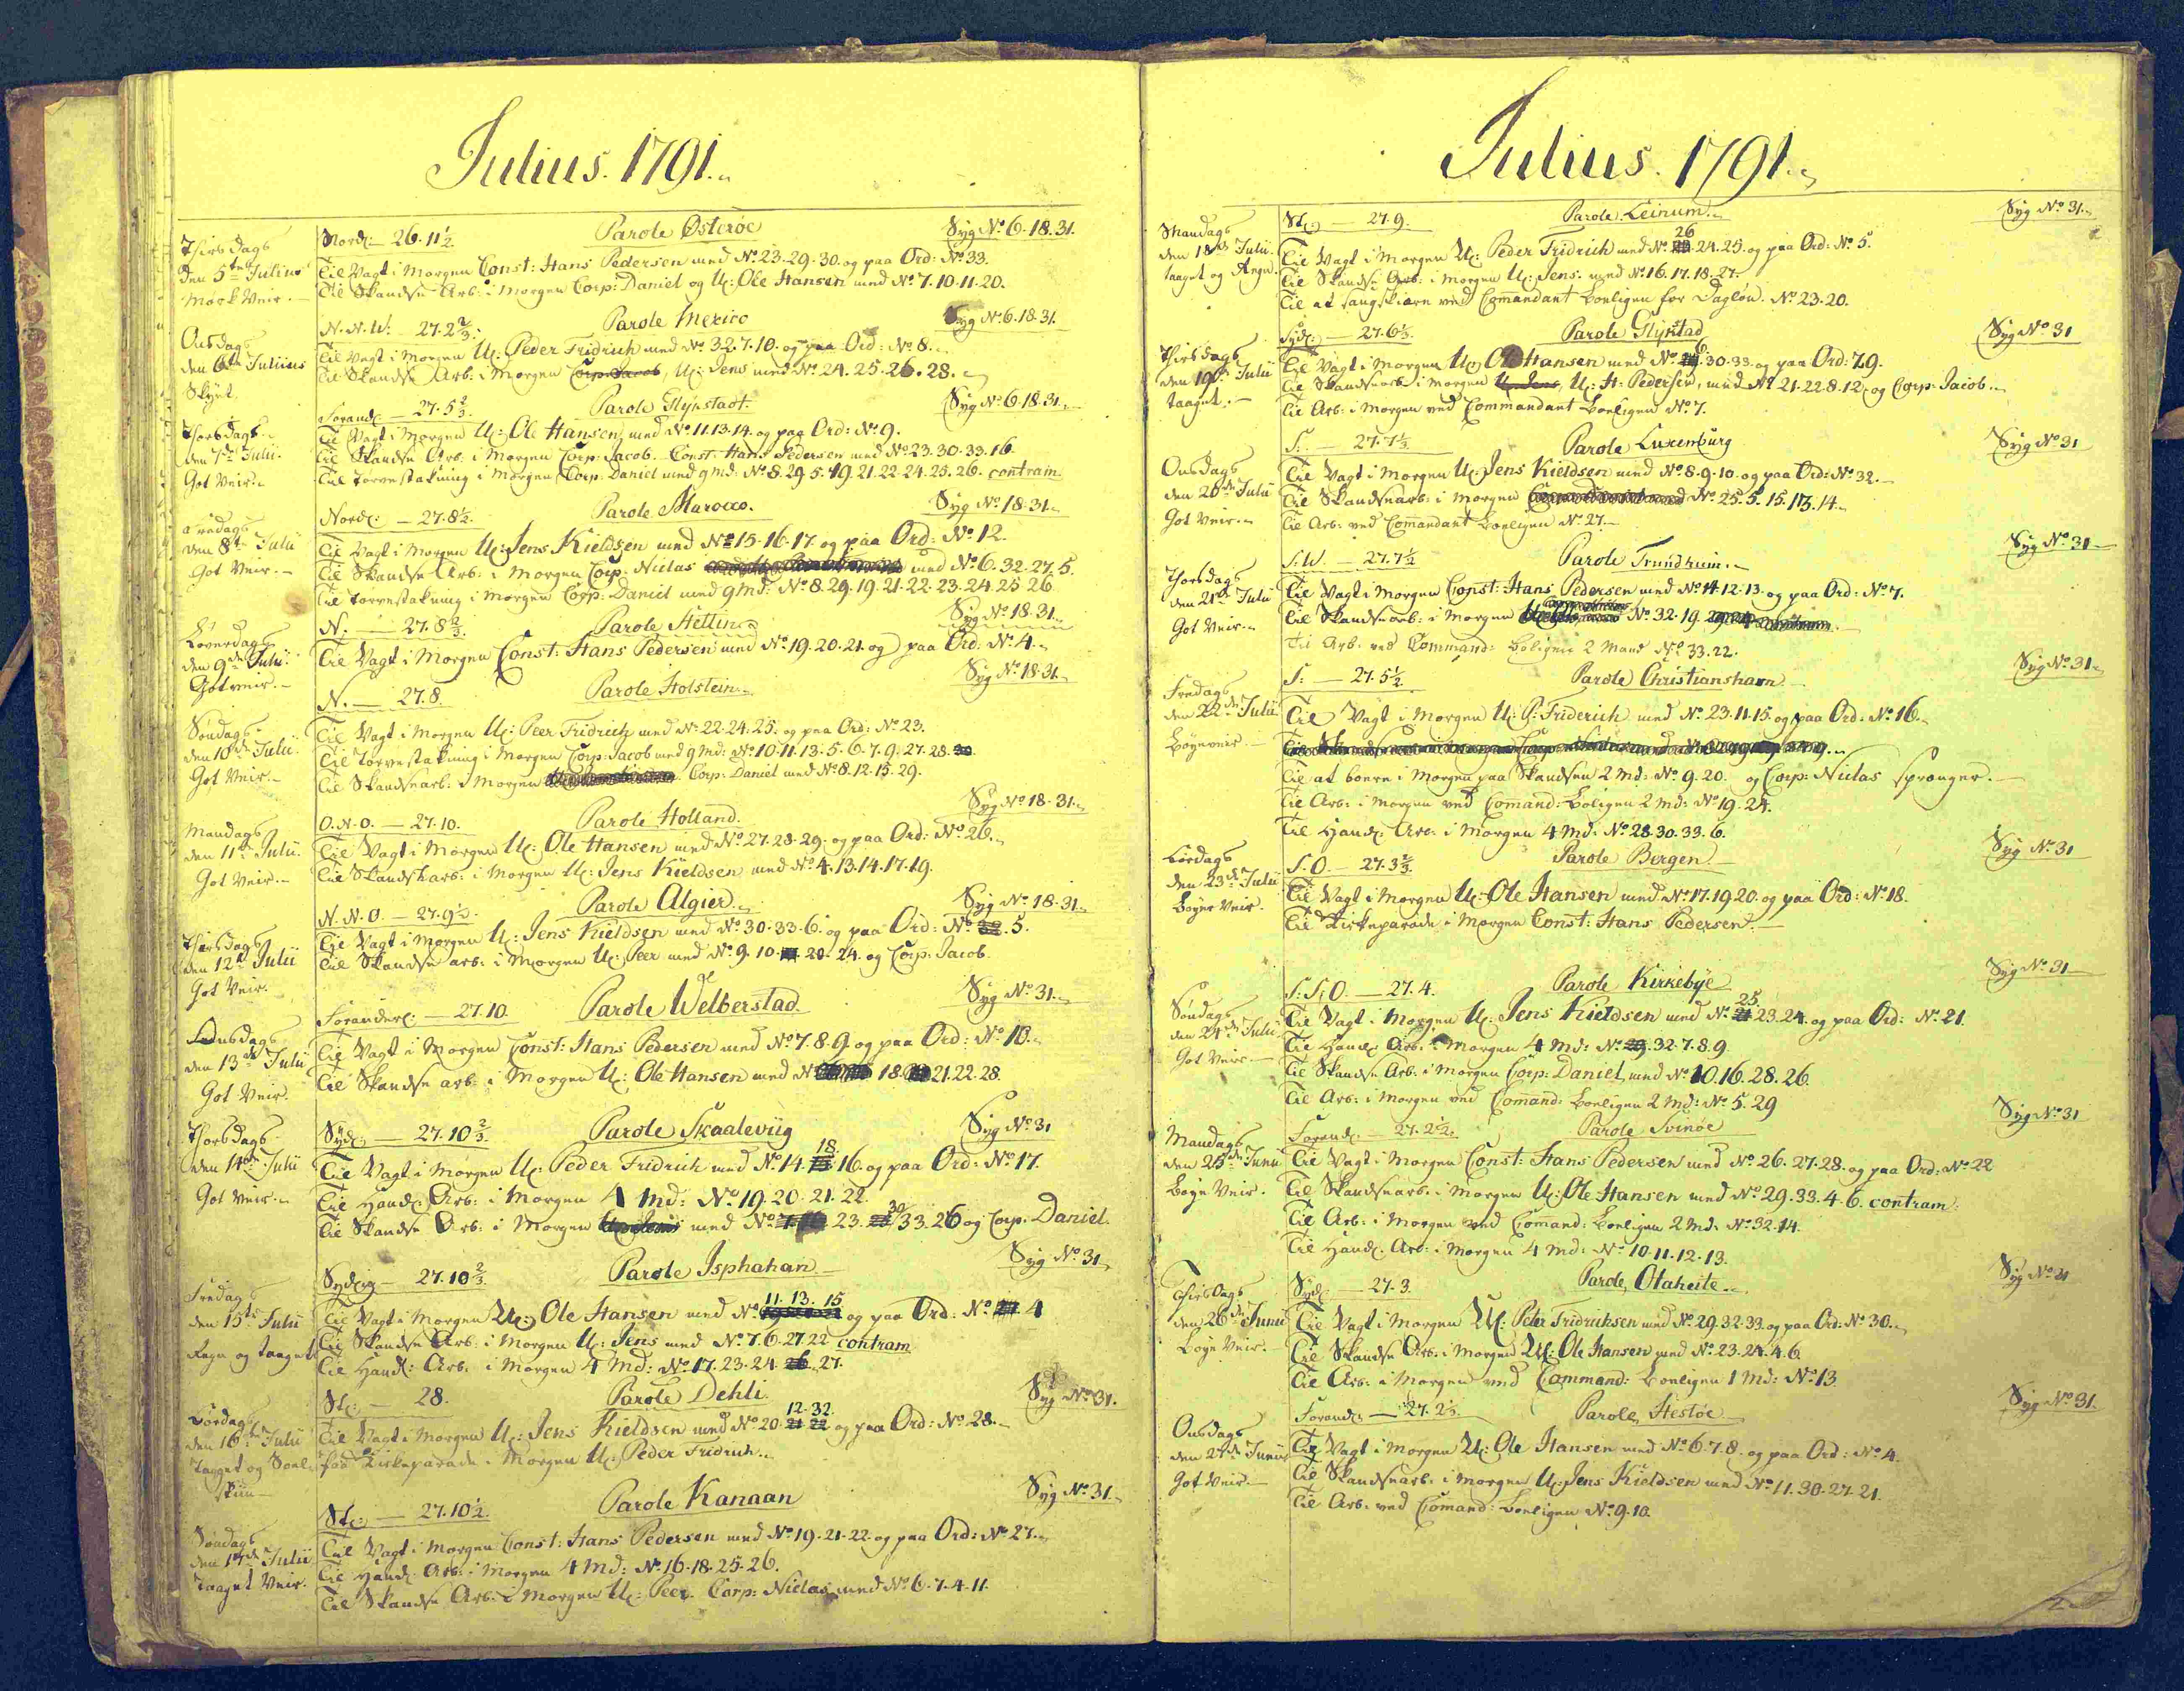 Julius. 1791.
Thirsdags
den 5te Julius
Mørk Veir.
Nordl: 26.11½
Parole Østerøe
Syg No 6.18.31.
Til Vagt i Morgen Const: Hans Pedersen med No 23.29.30. og paa Ord: No 33.
Til Skandse Arb: i Morgen Corp: Daniel og U: Ole Hansen med No 7.10.11.20.
Onsdags
den 6te Julius
Skyet.
N.N.W. 27.2⅔.
Parole Mexico
Syg No 6.18.31.
Til Vagt i Morgen U: Peder Fridrich med No 32.7.10. og paa Ord: No 8.
Til Skandse Arb: i Morgen Corp: Jacob, U: Jens med No 24.25.26.28.
Thorsdags
den 7de Julii.
Got Veir.
Forandl: 27.5⅔.
Parole Glyrstadt.
Syg No 6.18.31.
Til Vagt i Morgen U: Ole Hansen med No 11.13.14. og paa Ord: No 9.
Til Skandse Arb: i Morgen Corp: Jacob. Const: Hans Pedersen med No 23.30.33.16.
Til Torvestakning i Morgen Corp: Daniel med 9 md: No 8.29.5.19.21.22.24.25.26. contram
Fredags
den 8de Julii
Got Veir.
Nordl: 27.8½.
Parole Marocco.
Syg No 18.31.
Til Vagt i Morgen U: Jens Kieldsen med No 15.16.17. og paa Ord: No 12.
Til Skandse Arb: i Morgen Corp: Niclas med No 6.32.27.5.
Til Torvestakning i Morgen Corp: Daniel med 9 md: No 8.29.19.21.22.23.24.25.26
Løverdags
den 9de Julii.
Got veir.
N. 27.8⅔.
Parole Stettin
Syg No 18.31.
Til Vagt i Morgen Const: Hans Pedersen med No 19.20.21. og paa Ord: No 4.
Søndags
den 10de Julii.
Got Veir.
N. 27.8.
Parole Holstein.
Syg No 18.31.
Til Vagt i Morgen U: Peer Fridrich med No 22.24.25. og paa Ord: No 23.
Til Torvestakning i Morgen Corp: Jacob med 9 md: No 10.11.13.5.6.7.9.27.28.
Til Skandsearb: i Morgen Corp: Daniel med No 8.12.15.29.
Mandags
den 11te Julii.
Got Veir.
O.N.O. 27.10.
Parole Holland.
Syg No 18.31.
Til Vagt i Morgen U: Ole Hansen med No 27.28.29. og paa Ord: No 26.
Til Skandsearb: i Morgen U: Jens Kieldsen med No 4.13.14.17.19.
Thirsdags
den 12te Julii
Got Veir.
N.N.O. 27.9½.
Parole Algier.
Syg No 18.31.
Til Vagt i Morgen U: Jens Kieldsen med No 30.33.6. og paa Ord: No 32.5.
Til Skandse arb: i Morgen U: Peer med No 9.10. 20.24. og Corp: Jacob.
Onsdags
den 13de Julii
Got Veir.
Foranderl: 27.10.
Parole Welberstad
Syg No 31.
Til Vagt i Morgen Const: Hans Pedersen med No 7.8.9. og paa Ord: No 10.
Til Skandse arb: i Morgen U: Ole Hansen med No 18. 21.22.28.
Thorsdags
den 14de Julii
Got veir.
Sydl: 27.10⅔.
Parole Skaaleviig
Syg No 31
18.
Til Vagt i Morgen U: Peder Fridrich med No 14. 15 16. og paa Ord: No 17.
Til Handl: Arb: i Morgen 4 md: No 19.20.21.22.
30
Til Skandse Arb: i Morgen med No 23. 33.26 og Corp: Daniel.
Fredags
den 15de Julii
Regn og taaget
Sydlig 27.10⅔.
Parole Isphahan.
Syg No 31.
11. 13. 15
Til Vagt i Morgen U: Ole Hansen med No og paa Ord: No 4
Til Skandse Arb: i Morgen U: Jens med No 7.6.27.22 contram
Til Handl: Arb: i Morgen 4 md: No 17.23.24.26.27.
Lørdags
den 16de Julii
Taaget og Soel-
skiin
Stl: 28.
Parole Dehli.
Syg No 31.
12. 32.
Til Vagt i Morgen U: Jens Kieldsen med No 20. 21 22 og paa Ord: No 28.
paa Kirkeparade i Morgen U: Peder Fridrich.
Søndags
den 17de Julii
Taaget Veir.
Stl: 27.10½.
Parole Kanaan
Syg No 31.
Til Vagt i Morgen Const: Hans Pedersen med No 19.21.22. og paa Ord: No 27.
Til Handl: Arb: i Morgen 4 md: No 16.18.25.26.
Til Skandse Arb: i Morgen U: Peer. Corp: Niclas med No 6.7.4.11.
Julius. 1791.
Mandags
den 18de Julii
taaget og Regn.
Stl: 27.9.
Parole Leinum.
Syg No 31.
26
Til Vagt i Morgen U: Peder Fridrich med No 24.25. og paa Ord: No 5.
Til Skandse Arb: i Morgen U: Jens. med No 16.17.18.27.
Til at ved Comandant Boeligen for Dagløn. No 23.20.
Thirsdags
den 19de Julii
taaget.
Sydl: 27.6⅓.
Parole Glyrstad
Syg No 31
6
Til Vagt i Morgen U: Ole Hansen med No 30.33. og paa Ord: 29.
Til Skandsearb: i Morgen U: Jens, U: H: Pedersen, med No 21.22.8.12. og Corp: Jacob.
Til Arb: i Morgen ved Commandant Boeligen No 7.
Onsdags
den 20de Julii
Got Veir.
S. 27.7⅓
Parole Luxemburg
Syg No 31
Til Vagt i Morgen U: Jens Kieldsen med No 8.9.10. og paa Ord: No 32.
Til Skandsearb: i Morgen No 25.5.15.13.14.
Til Arb: ved Comandant Boeligen No 27.
Thorsdags
den 21de Julii
Got Veir.
S.W. 27.7½
Parole Trundrum.
Syg No 31
Til Vagt i Morgen Const: Hans Pedersen med No 11.12.13. og paa Ord: No 7.
Til Skandsearb: i Morgen No 32.19.
Til Arb: ved Command: Boligen 2 Mand No 33.22.
Fredags
den 22de Julii
Bøyeveir
S: 27.5½
Parole Christianshavn.
Syg No 31.
Til Vagt i Morgen U: P: Friderich med No 23.11.15. og paa Ord: No 16.
Til at boere i Morgen paa Skandsen 2 md: No 9.20. og Corp: Niclas sprenger.
Til Arb: i Morgen ved Comand: Boligen 2 md: No 19.24.
Til Handl: Arb: i Morgen 4 md: No 28.30.33.6.
Lørdags
den 23de Julii
Bøye Veir.
S.O 27.3⅔
Parole Bergen
Syg No 31
Til Vagt i Morgen U: Ole Hansen med No 17.19.20. og paa Ord: No 18.
Til Kirkeparade i Morgen Const: Hans Pedersen.
Søndags
den 24de Julii
Got Veir.
S:S:O. 27.4.
Parole Kirkebye
Syg No 31
25.
Til Vagt i Morgen U: Jens Kieldsen med No 23.24. og paa Ord: No 21.
Til Handl: Arb: i Morgen 4 md: No 29.32.7.8.9.
Til Skandse Arb: i Morgen Corp: Daniel, med No 10.16.28.26.
Til Arb: i Morgen ved Comand: Boeligen 2 md: No 5.29
Mandags
den 25de Junii
Bøye Veir.
Forandl: 27.2½.
Parole Svinøe
Syg No 31
Til Vagt i Morgen Const: Hans Pedersen med No 26.27.28. og paa Ord: No 22
Til Skandsearb: i Morgen U: Ole Hansen med No 29.33.4.6. contram
Til Arb: i Morgen ved Comand: Boeligen 2 md. No 32.14.
Til Handl: Arb: i Morgen 4 md: No 10.11.12.13.
Thirsdags
den 26de Junii
Bøye Veir.
Sydl: 27.3.
Parole, Otaheite.
Syg No 31
Til Vagt i Morgen U: Peter Fridriksen med No 29.32.33. og paa Ord: No 30.
Til Skandse Arb: i Morgen U: Ole Hansen med No 23.24.4.6.
Til Arb: i Morgen ved Command: Boeligen 1 md: No 13
Onsdags
den 27de Junii
Got Veir.
Forandl: 27.2⅓.
Parole, Hestøe
Syg No 31.
Til Vagt i Morgen U: Ole Hansen med No 6.7.8. og paa Ord: No 4.
Til Skandsearb: i Morgen U: Jens Kieldsen med No 11.30.27.21.
Til Arb: ved Comand: Boeligen No 9.10.